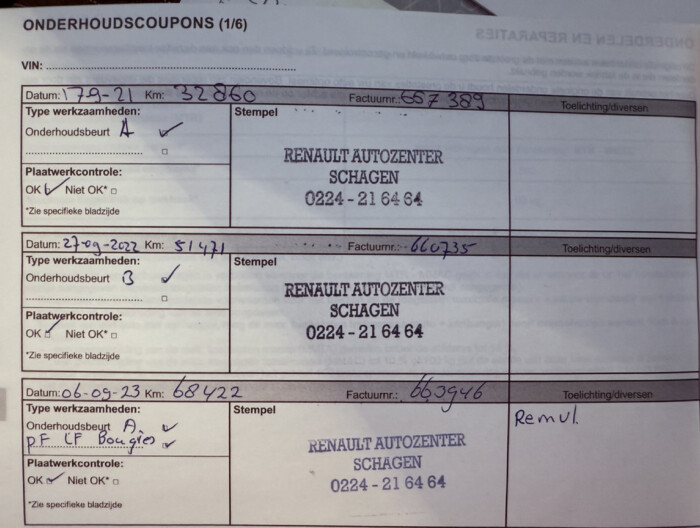 ONDERHOUDSCOUPONS (1/6)
ONDERDELEN EN REPARATIES
VIN:
Datum: 179-21 Km: 32860 Factuurnr.: 657389 Toelichting/diversen
Type werkzaamheden: Stempel
Onderhoudsbeurt A
Plaatwerkcontrole:
OK Niet OK*
*Zie specifieke bladzijde
RENAULT AUTOZENTER
SCHAGEN
0224-21 64 64
Datum: 27-09-2022 Km: 51471 Factuurnr.: 660735 Toelichting/diversen
Type werkzaamheden: Stempel
Onderhoudsbeurt B
Plaatwerkcontrole:
OK Niet OK*
*Zie specifieke bladzijde
RENAULT AUTOZENTER
SCHAGEN
0224-21 64 64
Datum: 06-09-23 Km: 68422 Factuurnr.: 663946 Toelichting/diversen
Type werkzaamheden: Stempel
Onderhoudsbeurt A.
pF CF Bougies
Plaatwerkcontrole:
OK Niet OK*
*Zie specifieke bladzijde
RENAULT AUTOZENTER
SCHAGEN
0224-21 64 64
Remvl.